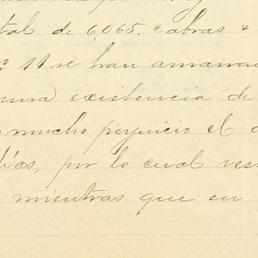 tal de 6,065. cabras &
11 se han amarra
una existencia de
mucho perjuicio el
días, por lo cual res
mientras que en